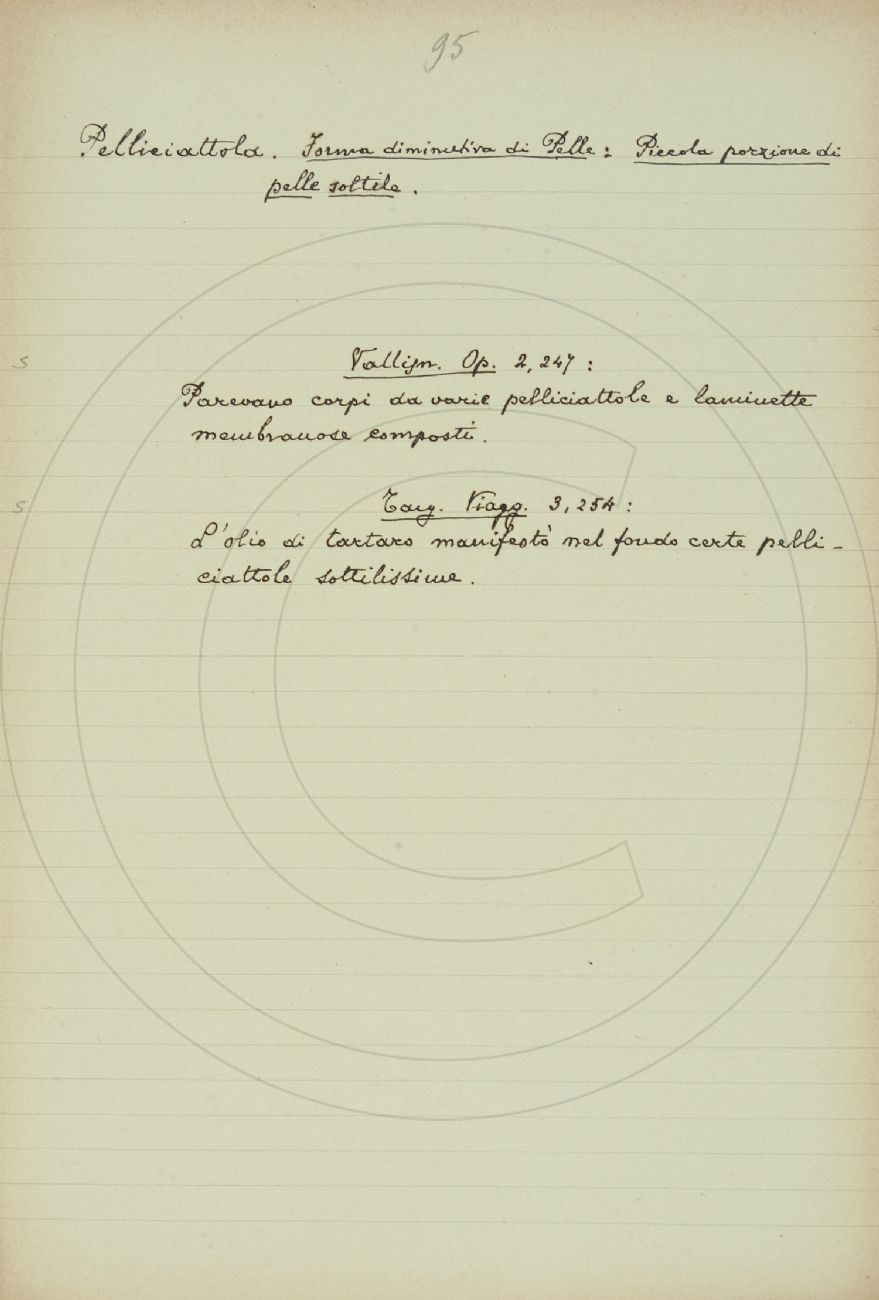 95
Pelliciattola. Forma diminutiva di Pelle: Piccola porzione di
pelle sottile.
s
Vallisn. Op. 2, 247:
Parevano corpi da varie pelliciattole e laminette
membranose composti.
s
Targ. Viagg. 3, 254:
L'olio di tartaro manifestò nel fondo certe pelli-
ciattole sottilissime.